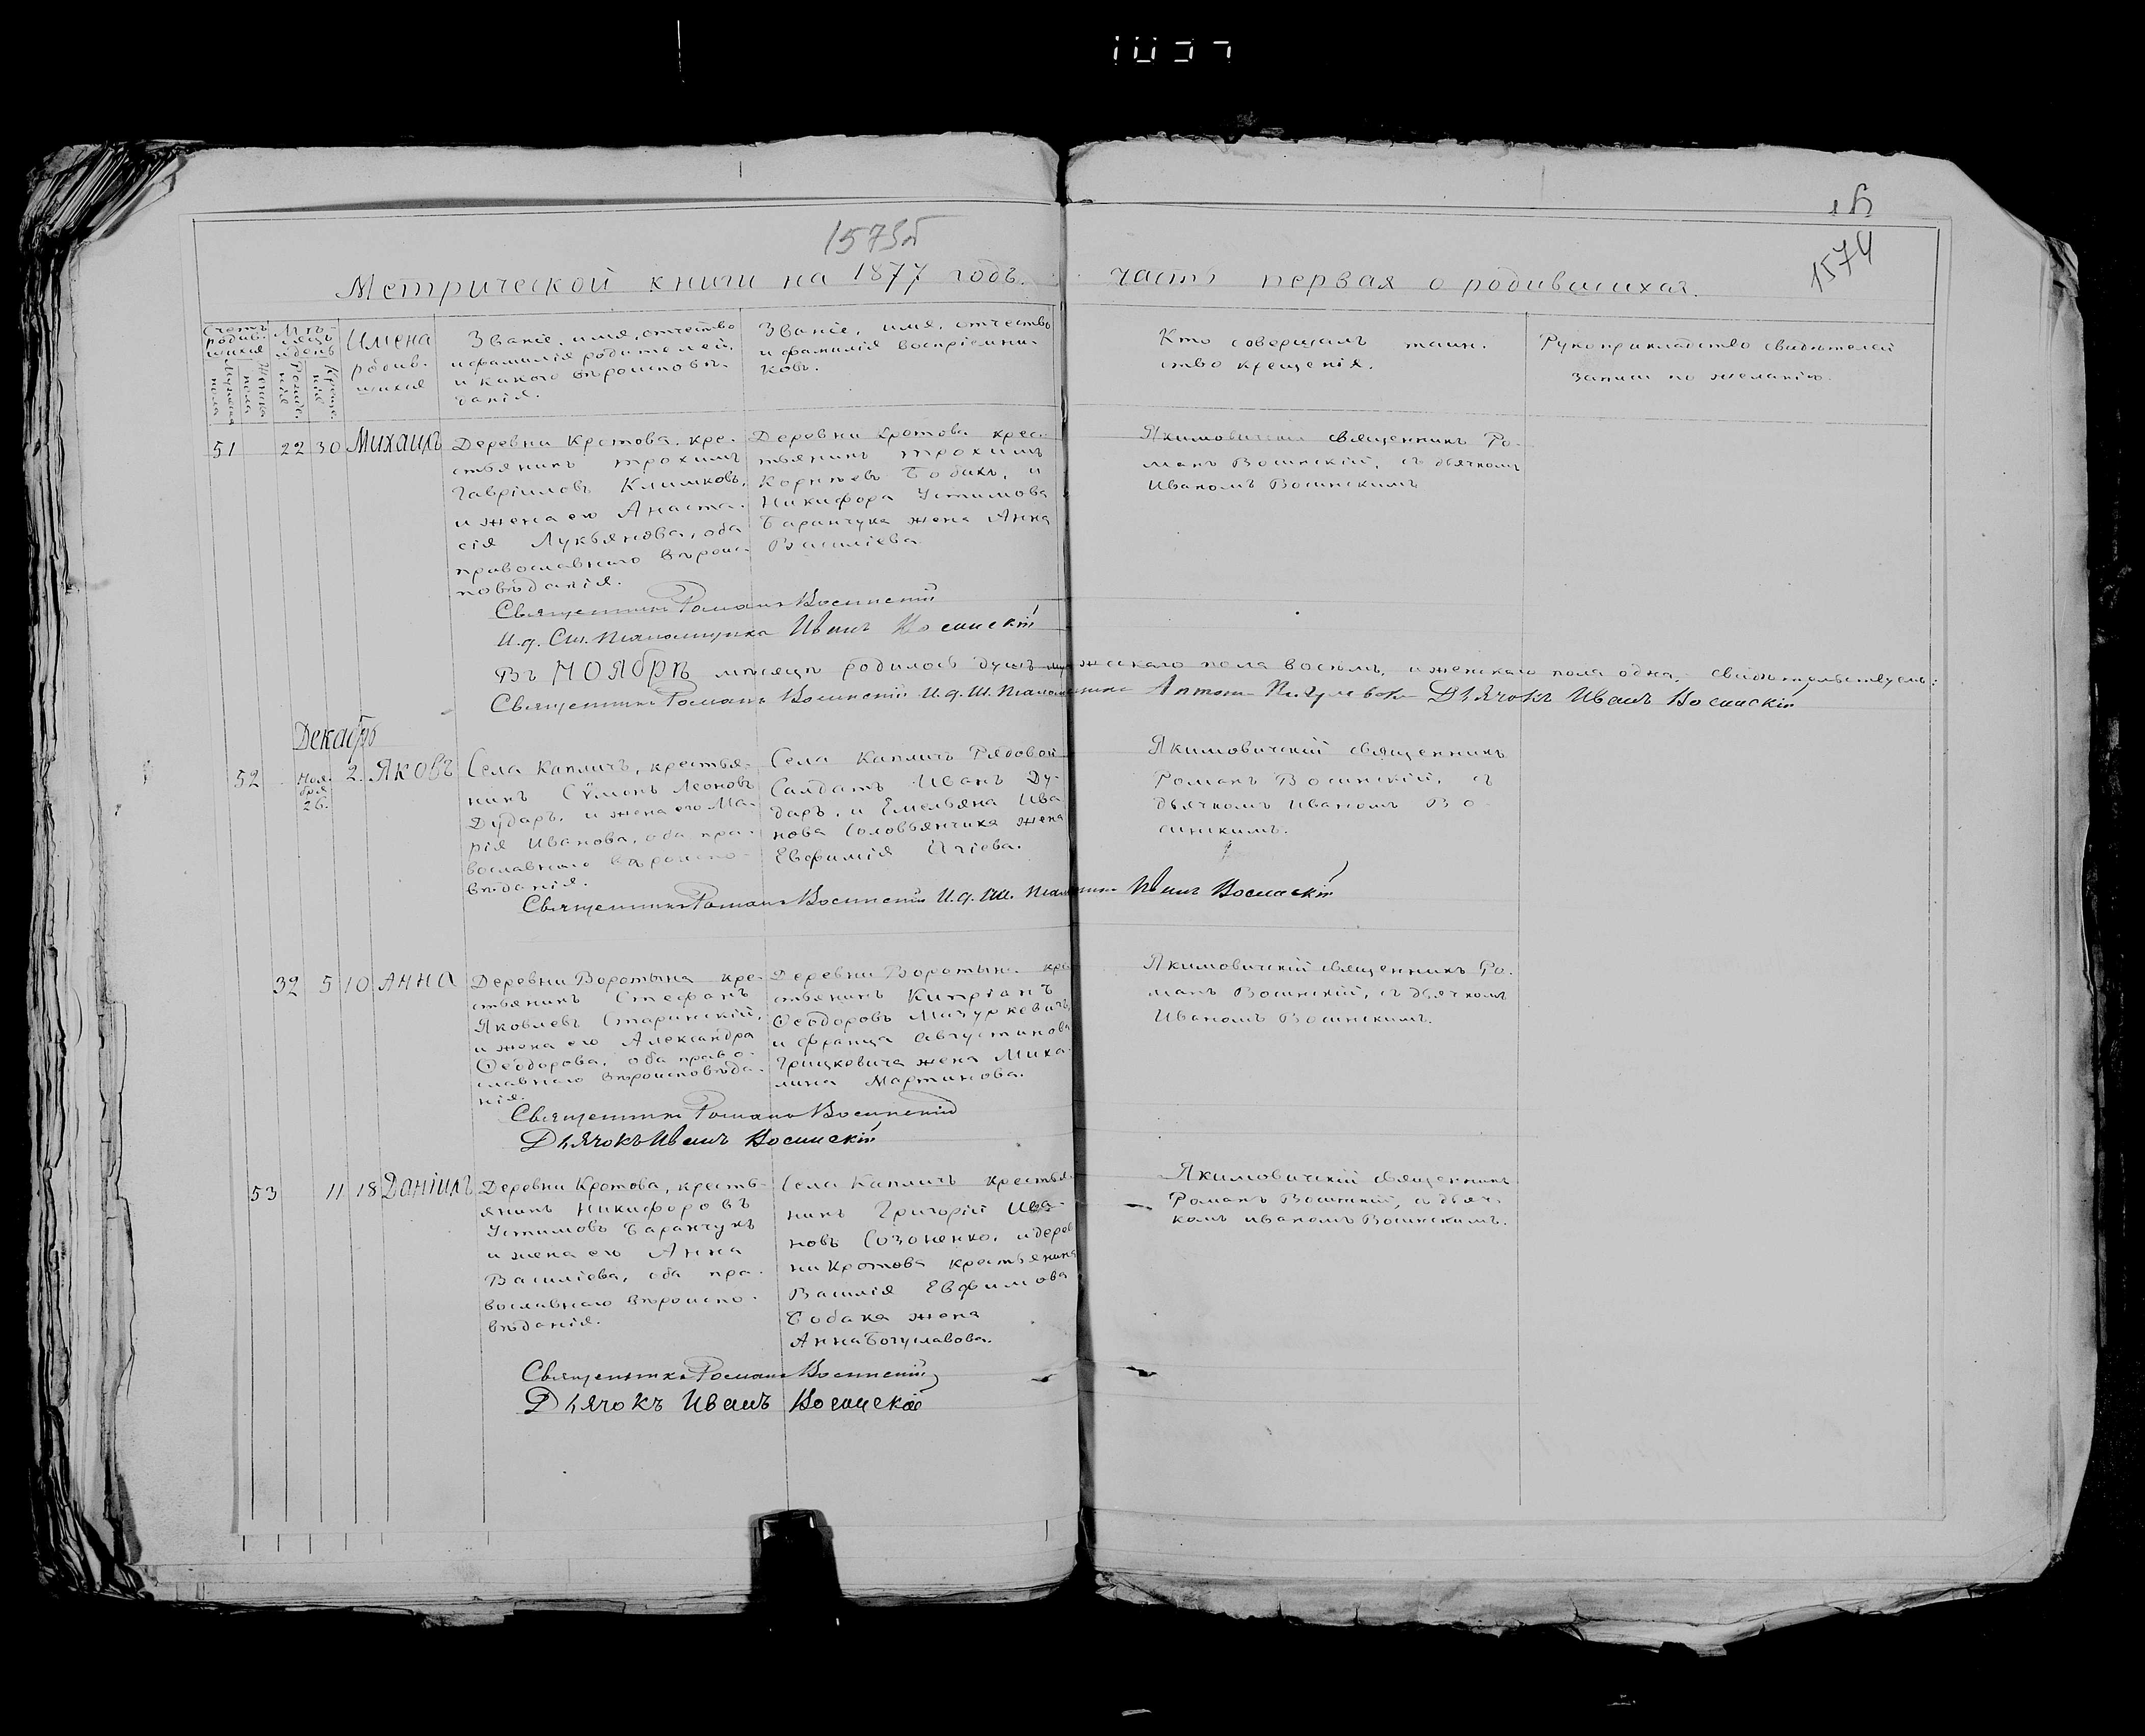 1573об
1574
Метрической книги на 1877 годъ. часть первая о родившихся.
Счетъ родив-шихся
Мужеска пола
Женска пола
Мѣ-сяцъ и день
Рожде-нія
Креще-нія
Имена
родив-
шихся
Званіе, имя, отчество
и фамилія родителей,
и какого вѣроисповѣ-
данія.
Званіе, имя, отчество
и фамилія воспріемни-
ковъ.
Кто совершалъ таин-
ство крещенія.
Рукоприкладство свидѣтелей
записи по желанію.
51 22 30 Михаилъ
Деревни Кротова, кре-
стьянинъ Трохимъ
Гавріиловъ Климковъ,
и жена его Анаста-
сія Лукьянова, оба
православнаго вѣроис-
повѣданія.
Деревни Кротова крес-
тьянинъ Трохимъ
Корнѣевъ Бобакъ, и
Никифора Устимова
Баранчука жена Анна
Василіева.
Якимовичскій священникъ Ро-
манъ Восинскій, съ дьячкомъ
Иваномъ Восинскимъ
Священникъ Романъ Восинскій
И.д. Псаломщика Иванъ Восинскій
Въ НОЯБРѣ мѣсяцѣ родилось душъ мужескаго пола восемь, и женскаго пола одна, свидѣтельствуемъ:
Священникъ Романъ Восинскій И.д. Псаломщика Антонъ Дьячокъ Иванъ Восинскій
Декабрь
52 Ноя-
бря
26. 2. Яковъ
Села Капличъ, крестья-
нинъ Сѵмонъ Леоновъ
Дударъ, и жена его Ма-
рія Иванова, оба пра-
вославнаго вѣроиспо-
вѣданія.
Села Капличъ Рядовой
Солдатъ Иванъ Ду-
даръ, и Емельяна Ива
нова Соловьянчика жена
Евфимія
Якимовичскій священникъ
Романъ Восинскій, съ
дьячкомъ Иваномъ Во-
синскимъ.
Священникъ Романъ Восинскій И.д. Псаломщика Иванъ Восинскій
32 5 10 Анна
Деревни Воротына кре-
стьянинъ Стефанъ
Яковлевъ Старинскій,
и жена его Александра
Ѳеодорова, оба право-
славнаго вѣроисповѣда-
нія.
Деревни Воротын. кре
стьянинъ Кипріанъ
Ѳеодоровъ Мазуркевичъ,
и Франца Августинова
Грицкевича жена Миха-
лина Мартинова.
Якимовичскій священникъ Ро-
манъ Восинскій, съ дьячкомъ
Иваномъ Восинскимъ.
Священникъ Романъ Восинскій
Дьячокъ Иванъ Восинскій
53 11 18 Даніилъ
Деревни Кротова, кресть-
янинъ Никифоровъ
Устимовъ Баранчукъ
и жена его Анна
Василіева, оба пра-
вославнаго вѣроиспо-
вѣданія.
Села Капличъ крестья-
нинъ Григорій Ива-
новъ Созоненко, и дерев
ни Кротова крестьянина
Василія Евфимова
Бобака жена
Анна Богуславова.
Якимовичскій священникъ
Романъ Восинскій, съ дьяч-
комъ Иваномъ Восинскимъ.
Священникъ Романъ Восинскій
Дьячокъ Иванъ Восинскій